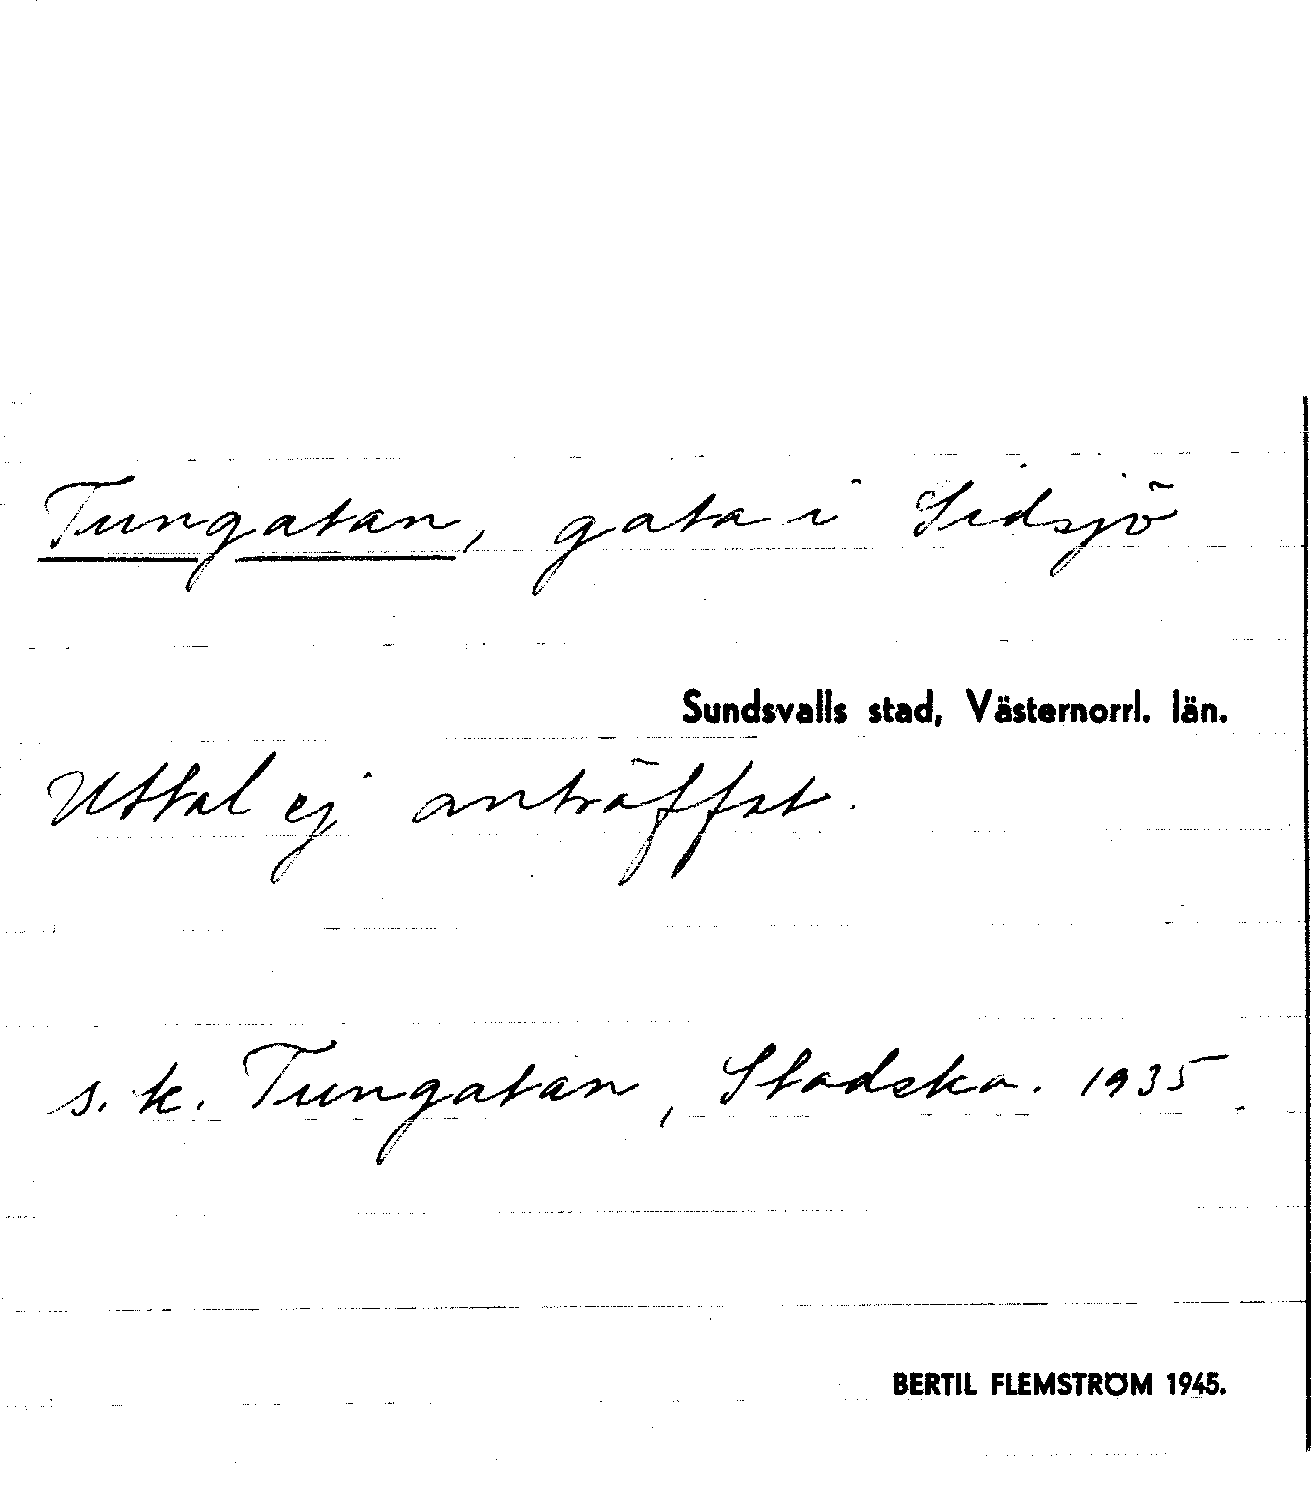 Tungatan, gata i Sidsjö
Sundsvalls stad, Västernorrl. län.
Uttal ej anträffat.
s. k. Tungatan, Stadska. 1935
BERTIL FLEMSTRÖM 1945.